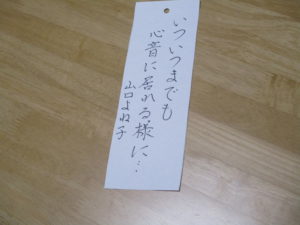 いついつまでも
心音に居れる様に…
山口よね子